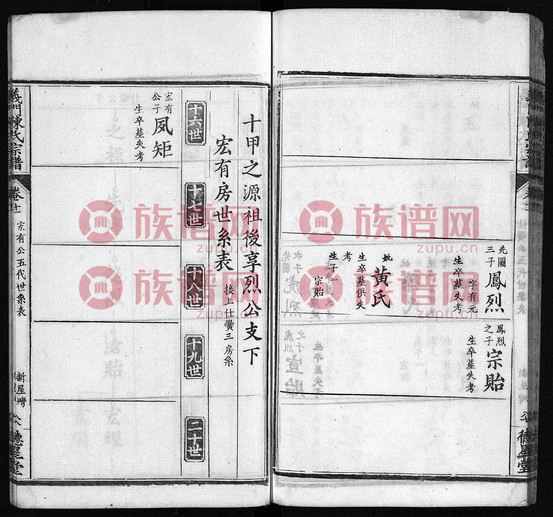 先圖
三子
鳳烈
字有元
生卒墓失考
妣
黃氏
生卒墓俱失
考
生子一
宗貽
鳳烈
之子
宗貽
生卒墓失考
德星堂
十甲之源祖後享烈公支下
宏有房世系表
接上仕黌三房系
十六世
十七世
十八世
十九世
二十世
宏有
公子
鳳矩
生卒墓失考
義門陳氏宗譜
卷十一
宏有公五代世系表
新屋灣
德星堂
族谱网
zupu.cn
族谱网
zupu.cn
族谱网
zupu.cn
族谱网
zupu.cn